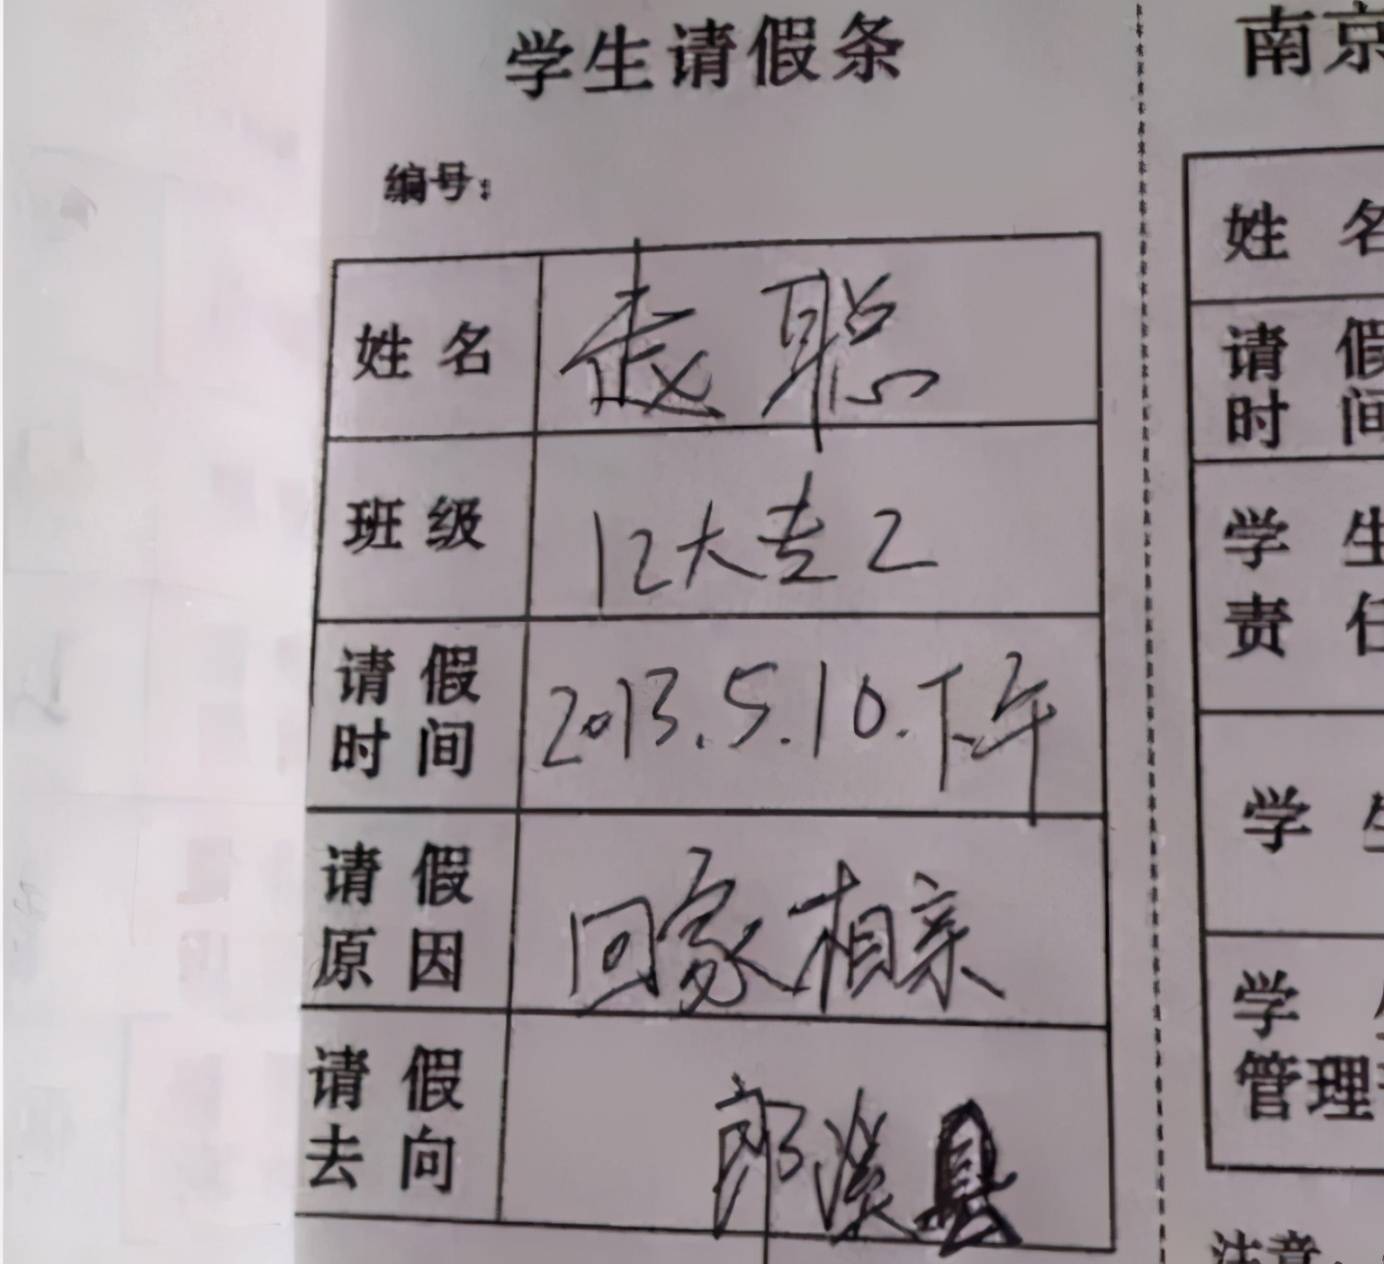 学生请假条
编号:
姓名 赵聪
班级 12大专2
请假时间 2013.5.10.下午
请假原因 回家相亲
请假去向 郎溪县
南京
姓名
请假
时间
学生
责任
学生
学
管理
注意